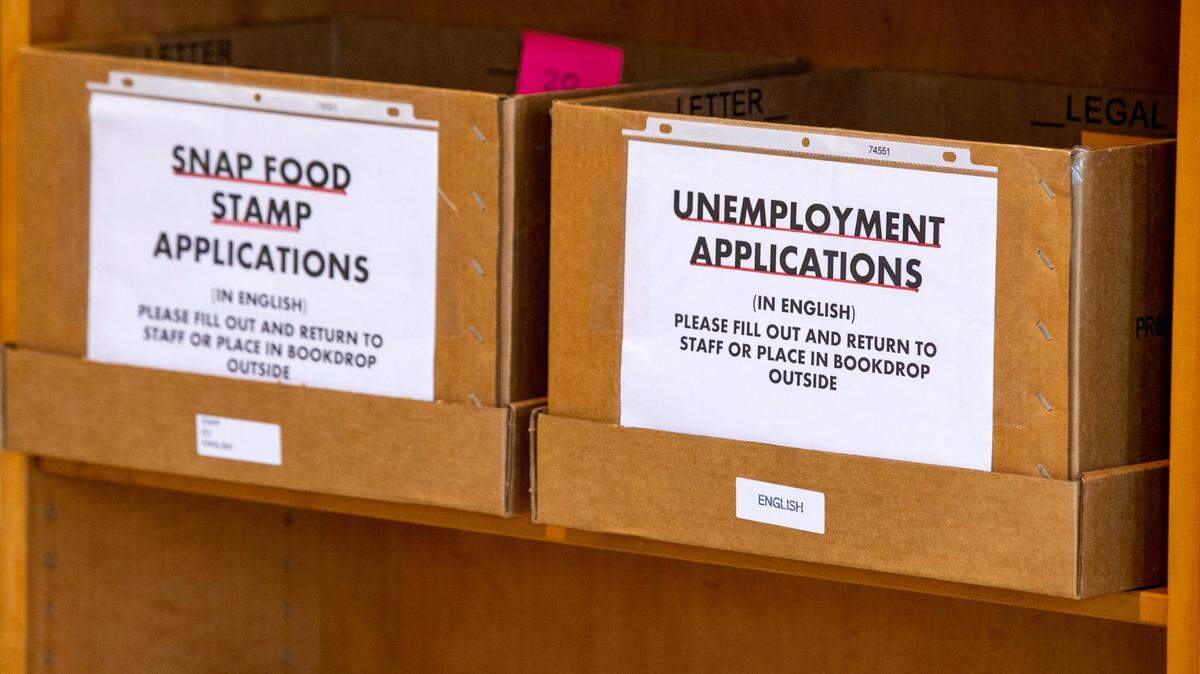 LETTER
20
SNAP FOOD
STAMP
APPLICATIONS
(IN ENGLISH)
PLEASE FILL OUT AND RETURN TO
STAFF OR PLACE IN BOOKDROP
OUTSIDE
LETTER__
__LEGAL
74551
UNEMPLOYMENT
APPLICATIONS
(IN ENGLISH)
PLEASE FILL OUT AND RETURN TO
STAFF OR PLACE IN BOOKDROP
OUTSIDE
ENGLISH